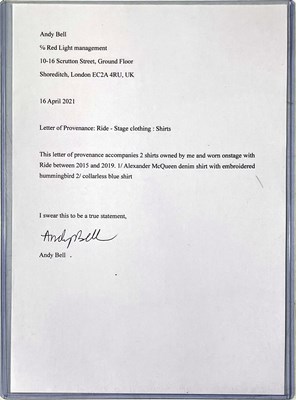 Andy Bell
℅ Red Light management
10-16 Scrutton Street, Ground Floor
Shoreditch, London EC2A 4RU, UK
16 April 2021
Letter of Provenance: Ride - Stage clothing : Shirts
This letter of provenance accompanies 2 shirts owned by me and worn onstage with
Ride between 2015 and 2019. 1/ Alexander McQueen denim shirt with embroidered
hummingbird 2/ collarless blue shirt
I swear this to be a true statement,
Andy Bell
Andy Bell .